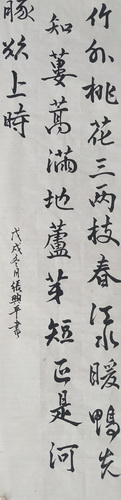 竹外桃花三两枝春江水暖鴨先
知蔞蒿滿地蘆芽短正是河
豚欲上時
戊戌冬月張興平書